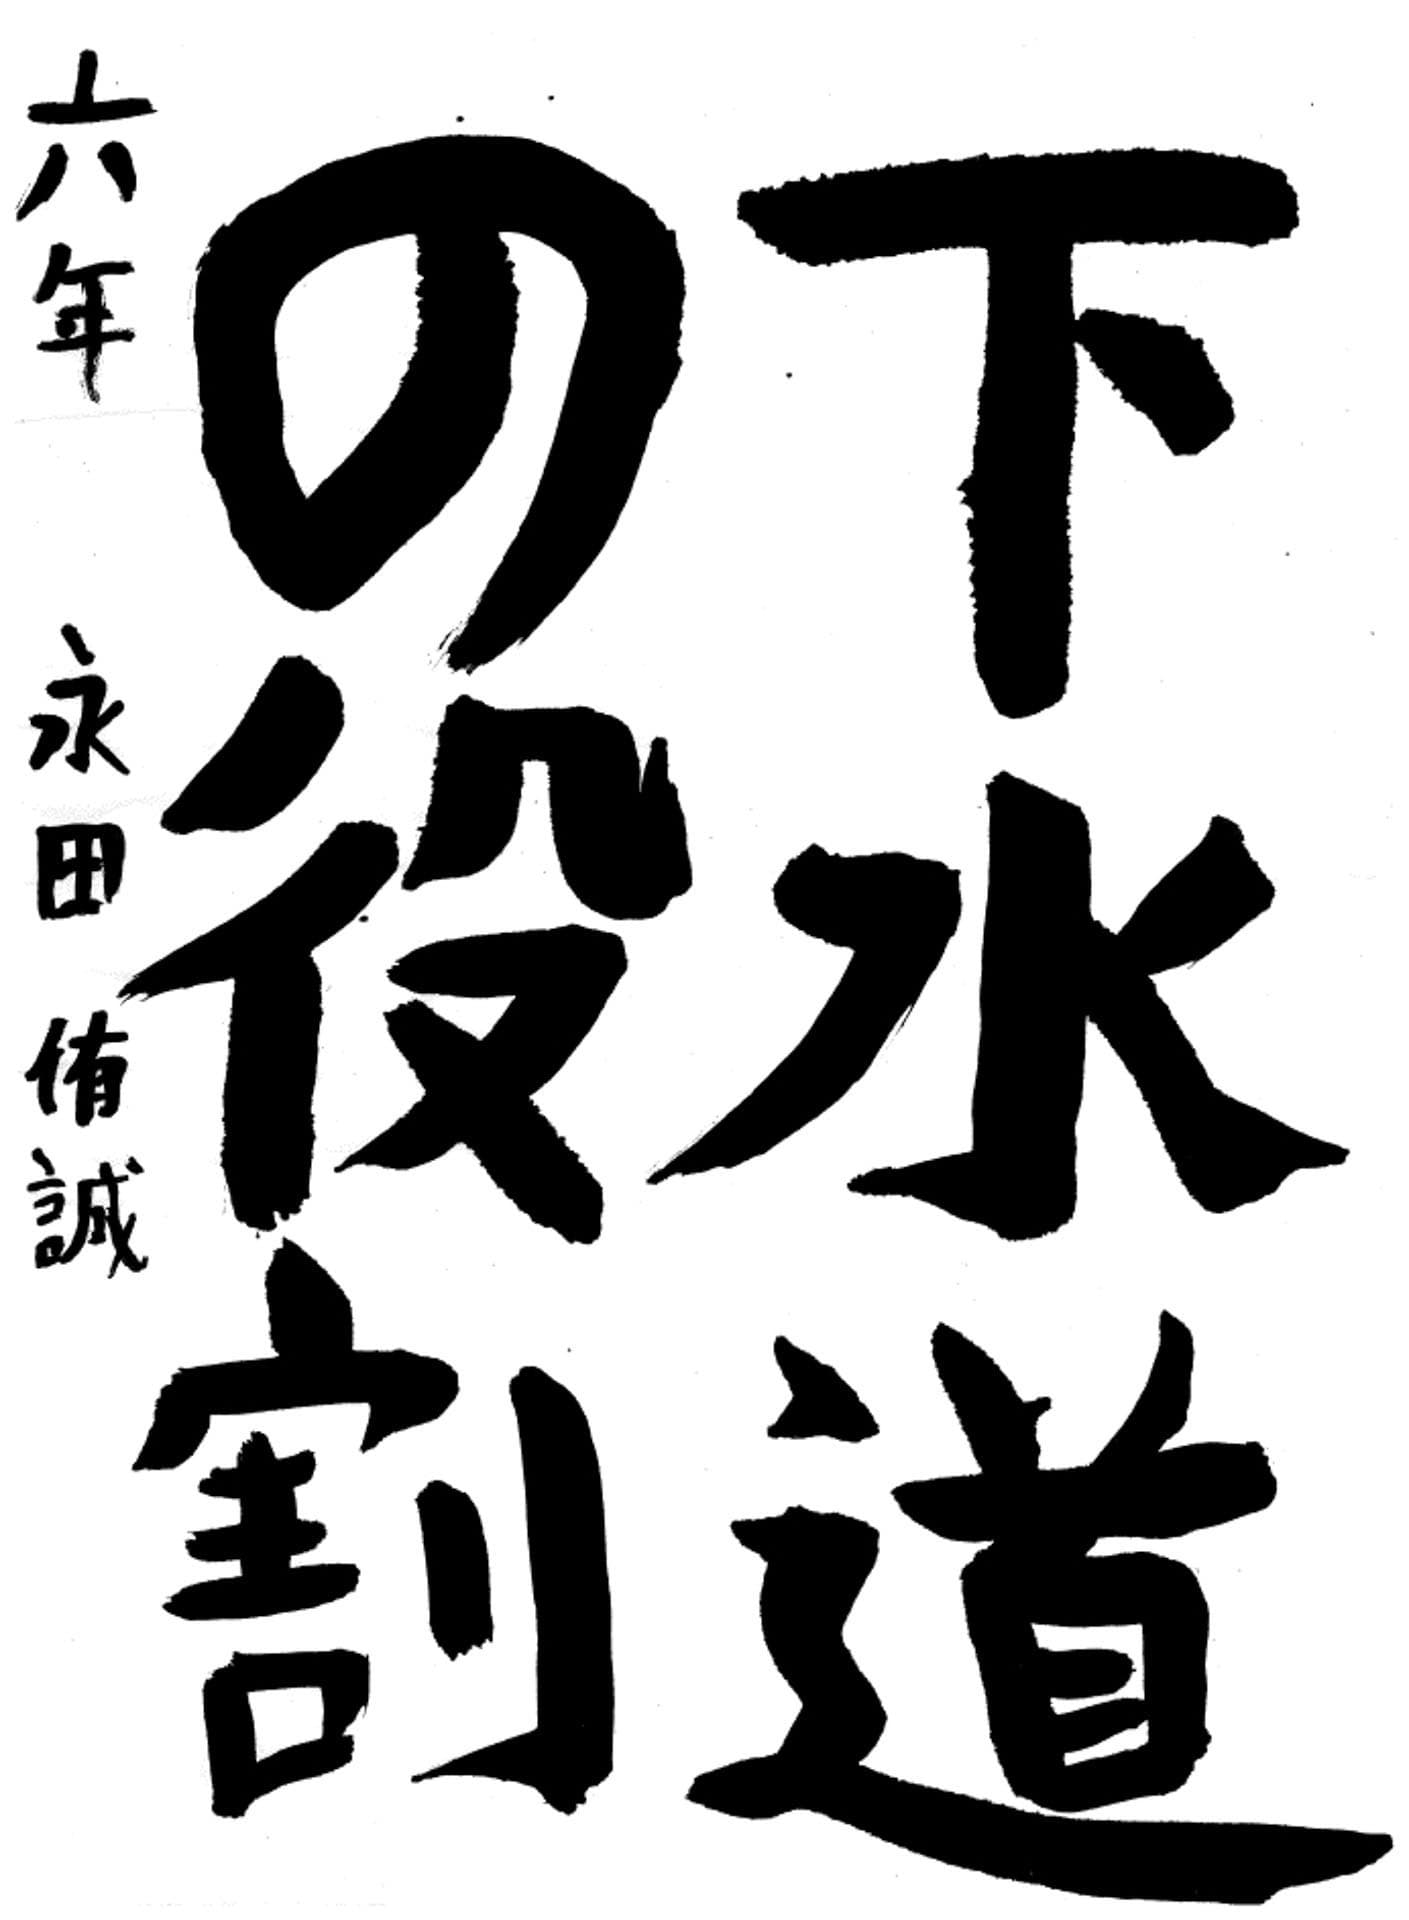 下水道
の役割
六年 永田侑誠